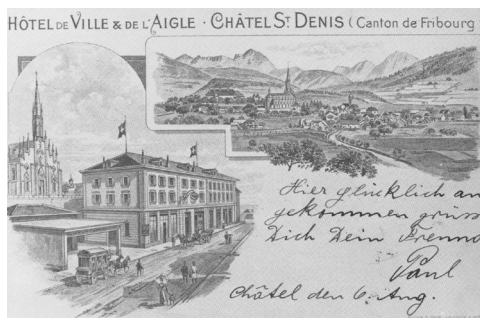 HÔTEL DE VILLE & DE L'AIGLE · CHÂTEL ST DENIS (CANTON DE FRIBOURG
Hier glücklich an
gekommen grüss
Dich Dein Freund
Paul
Châtel den 6. Aug.